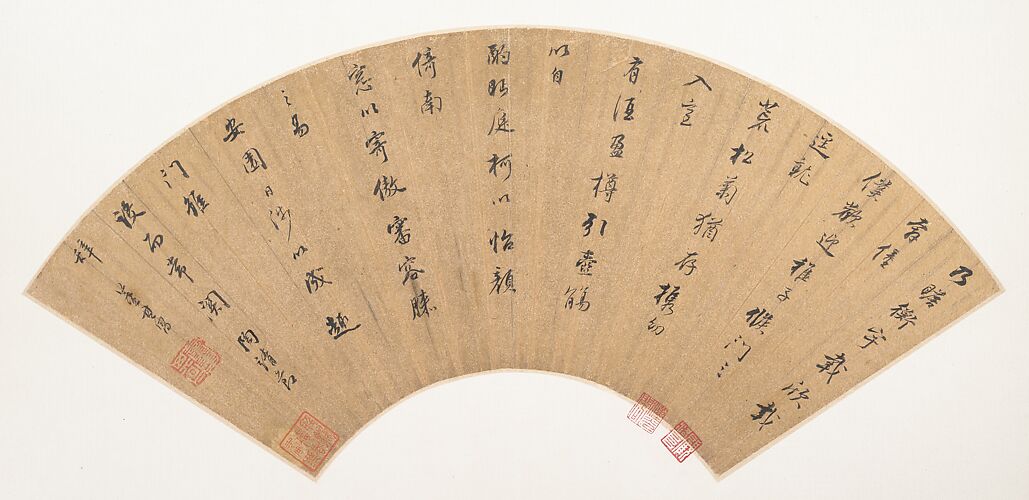 乃瞻衡宇載欣載
奔僮
僕歡迎稚子候門三
逕就
荒松菊猶存攜幼
入室
有酒盈樽引壺觴
以自
酌眄庭柯以怡顏
倚南
窓以寄傲審容膝
之易
安園日涉以成趣
门雖
設而常関陶靖節
辭
董其昌